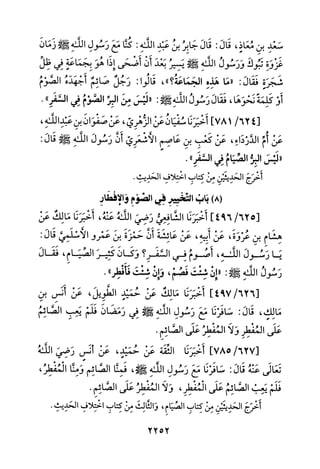 سَعْدِ بنِ مُعَاذٍ، قَالَ: قَالَ جَابِرُ بنُ عَبْدِ اللَّـهِ: كُنَّا مَعَ رَسُولِ اللَّـهِ ﷺ زَمَانَ
غَزْوَةِ تَبُوكَ وَرَسُولُ اللَّـهِ ﷺ يَسِيرُ بَعْدَ أَنْ أَضْحَى إِذَا هُوَ بِجَمَاعَةٍ فِي ظِلِّ
شَجَرَةٍ فَقَالَ: «مَا هَذِهِ الجَمَاعَةُ؟»، قَالُوا: رَجُلٌ صَائِمٌ أَجْهَدَهُ الصَّوْمُ
أَوْ كَلِمَةً نَحْوَهَا، فَقَالَ رَسُولُ اللَّـهِ ﷺ: «لَيْسَ مِنَ البِرِّ الصَّوْمُ فِي السَّفَرِ».
[٦٢٤/ ٧٨١] أَخْبَرَنَا سُفْيَانُ عَنِ الزُّهْرِيِّ، عَنْ صَفْوَانَ بنِ عَبْدِاللَّـهِ،
عَنْ أُمِّ الدَّرْدَاءِ، عَنْ كَعْبِ بنِ عَاصِمٍ الأَشْعَرِيِّ أَنَّ رَسُولَ اللَّـهِ ﷺ قَالَ:
«لَيْسَ البِرُّ الصِّيَامُ فِي السَّفَرِ».
أَخْرَجَ الحَدِيثَيْنِ مِنْ كِتابِ اخْتِلافِ الحَدِيثِ.
(٨) بَابُ التَّخْيِيرِ فِي الصَّوْمِ وَالإِفْطَارِ
[٦٢٥/ ٤٩٦] أَخْبَرَنَا الشَّافِعِيُّ رَضِيَ اللَّـهُ عَنْهُ، أَخْبَرَنَا مَالِكٌ عَنْ
هِشَامِ بنِ عُرْوَةَ، عَنْ أَبِيهِ، عَنْ عَائِشَةَ أَنَّ حَمْزَةَ بنَ عَمْرو الأَسْلَمِيَّ قَالَ:
يَا رَسُولَ اللَّـهِ، أَصُومُ فِي السَّفَرِ؟ وَكَانَ كَثِيرَ الصِّيَامِ، فَقَالَ
رَسُولُ اللَّـهِ ﷺ: «إِنْ شِئْتَ فَصُمْ، وَإِنْ شِئْتَ فَأَفْطِرْ».
[٦٢٦/ ٤٩٧] أَخْبَرَنَا مَالِكٌ عَنْ حُمَيْدٍ الطَّوِيلِ، عَنْ أَنَسِ بنِ
مَالِكٍ، قَالَ: سَافَرْنَا مَعَ رَسُولِ اللَّـهِ ﷺ فِي رَمَضَانَ فَلَمْ يَعِبِ الصَّائِمُ
عَلَى المُفْطِرِ وَلاَ المُفْطِرُ عَلَى الصَّائِمِ.
[٦٢٧/ ٧٨٥] أَخْبَرَنَا الثِّقَةُ عَنْ حُمَيْدٍ، عَنْ أَنَسٍ رَضِيَ اللَّـهُ
تَعَالَى عَنْهُ قَالَ: سَافَرْنَا مَعَ رَسُولِ اللَّـهِ ﷺ، فَمِنَّا الصَّائِمُ وَمِنَّا المُفْطِرُ،
فَلَمْ يَعِبْ الصَّائِمُ عَلَى المُفْطِرِ، وَلاَ المُفْطِرُ عَلَى الصَّائِمِ.
أَخْرَجَ الحَدِيثَيْنِ مِنْ كِتابِ الصِّيَامِ، وَالثَّالِثَ مِنْ كِتابِ اخْتِلافِ الحَدِيثِ.
٢٢٥٢